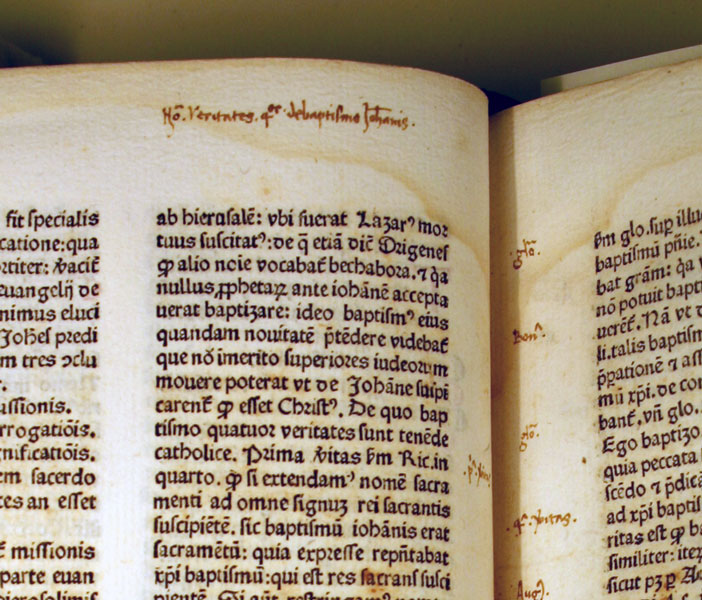 Nō. Veritates. qͦʳ. de baptismo Joh̄anis.
fit specialis
catione: qua
rtiter: v̓acit̉
euangelij de
nimus eluci
Joh̄es predi
m tres ↄclu
ussionis.
rrogatiōis.
gnificatiōis.
em sacerdo
tes an esset
missionis
parte euan
hierosolimis
ab hierusalē: vbi fuerat Lazarꝰ mor
tuus suscitatꝰ: de q̄ etiā dic̄ Origenes
ꝙ alio noīe vocabat̉ bechabora. ⁊ q̓a
nullus ꝓphetaꝝ ante iohānē accepta
uerat baptizare: ideo baptismꝰ eius
quandam nouitatē p̄tēdere videbat̉
que nō īmerito superiores iudeorum
mouere poterat vt de Johāne suspi
carent̉ ꝙ esset Christꝰ. De quo bap
tismo quatuor veritates sunt tenēde
catholice. Prima v̓itas ẜm Ric. in
quarto. ꝙ si extendamꝰ nomē sacra
menti ad omne signuꝫ rei sacrantis
suscipiētē. sic baptismū iohānis erat
sacramētū: quia expresse repn̄tabat
xp̄i baptismū: qui est res sacrans susci
pientē. Si aūt restringamꝰ nomen
glō.
Bonᵃ.
glō.
Aug.
ẜm glo. suꝑ illud
baptismū pn̄ie.
bat grām: q̓a v
nō potuit bapti
uerēt̉. Nā vt d
li. talis baptism
p̄ꝑationē ⁊ ass
mū xp̄i. de con
bant̉. vn̄ glo.
Ego baptizo
quia peccata
scēdo ⁊ p̄dicā
ad xp̄i baptis
ritas est ꝙ b
similiter: iteꝝ
sicut pꝫ ꝑ A